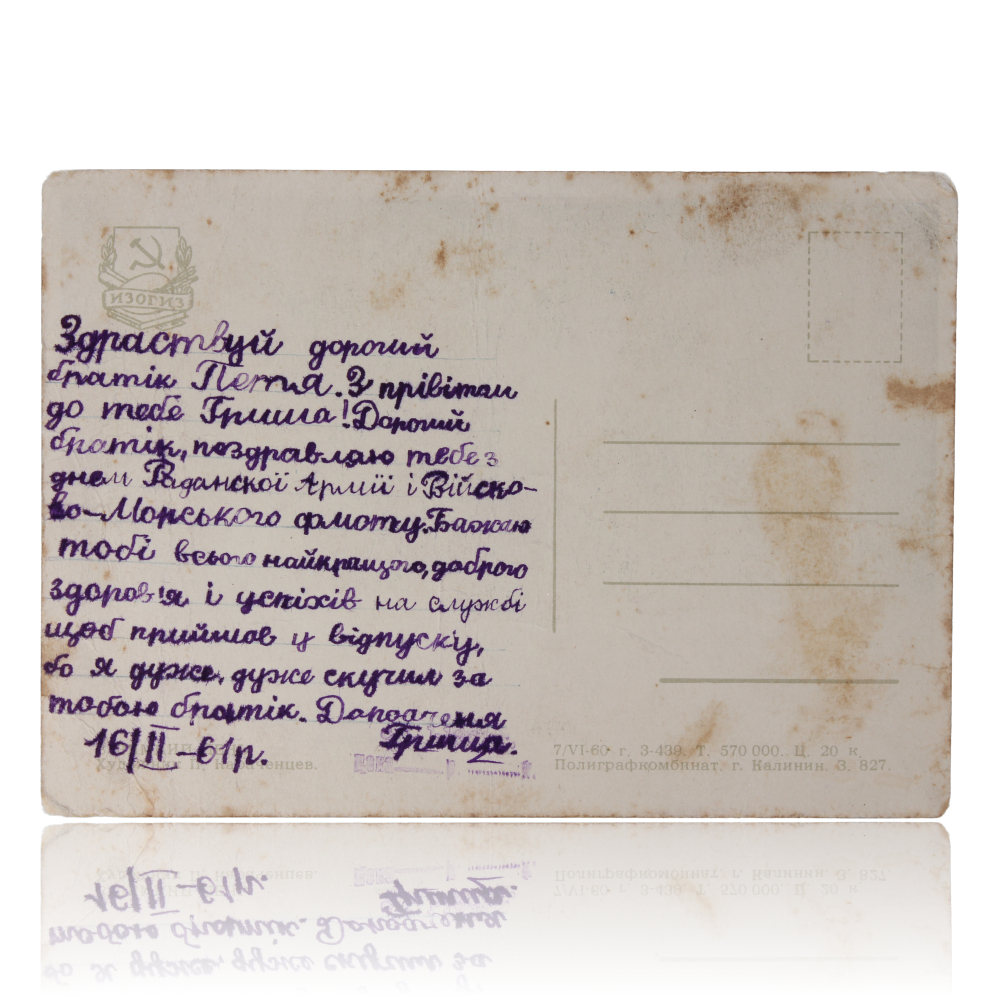 ИЗОГИЗ
Здраствуй дорогий
братік Петя. З прівітом
до тебе Гриша! Дорогий
братік, поздравляю тебе з
днем Радянскої Армії і Війско-
во-Морського флоту. Бажаю
тобі всього найкращого, доброго
здоров'я і успіхів на службі
щоб прийшов у відпуску,
бо я дуже, дуже скучил за
тобою братік. До побаченя
Гриша.
16/II-61 р.
7/VI-60 г. З-439. Т. 570 000. Ц. 20 к.
Полиграфкомбинат, г. Калинин. З. 827.